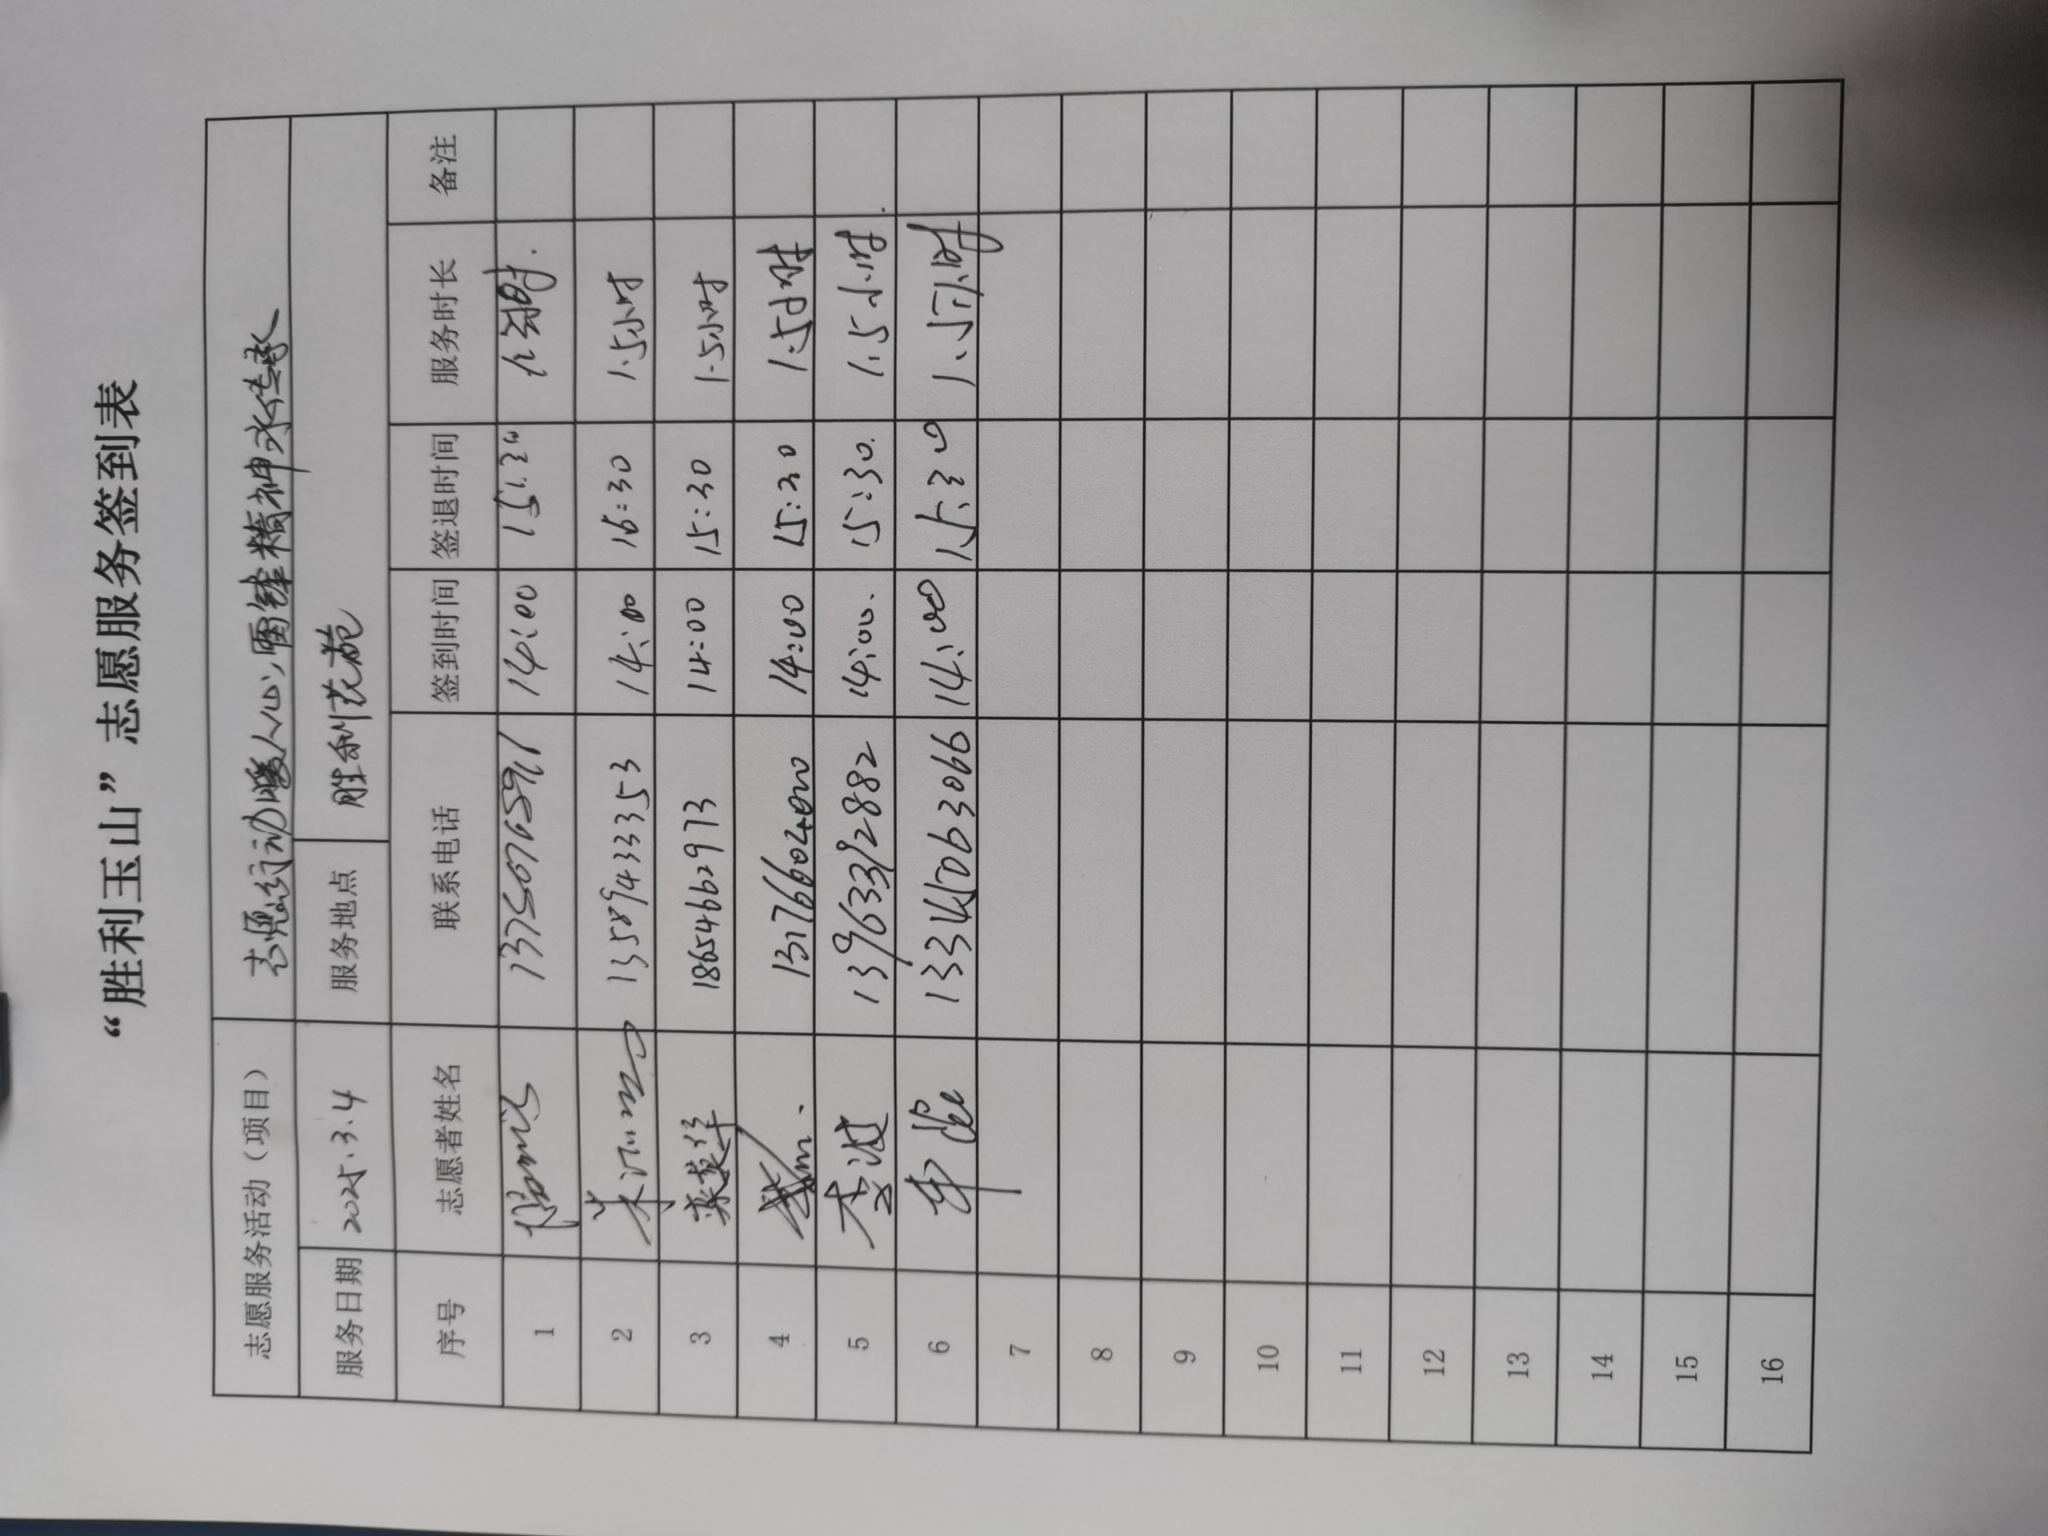 “胜利玉山”志愿服务签到表
志愿服务活动（项目） 志愿行动暖人心，雷锋精神永传承
服务日期 2025.3.4 服务地点 胜利花苑
序号 志愿者姓名 联系电话 签到时间 签退时间 服务时长 备注
1 14:00 15:30
2 13589433353 14:00 16:30 1.5小时
3 18654662973 14:00 15:30 1.5小时
4 13176604000 14:00 15:30 1.5小时
5 李波 13963312882 14:00. 15:30. 1.5小时.
6 14:00 15:30 1.5小时
7
8
9
10
11
12
13
14
15
16